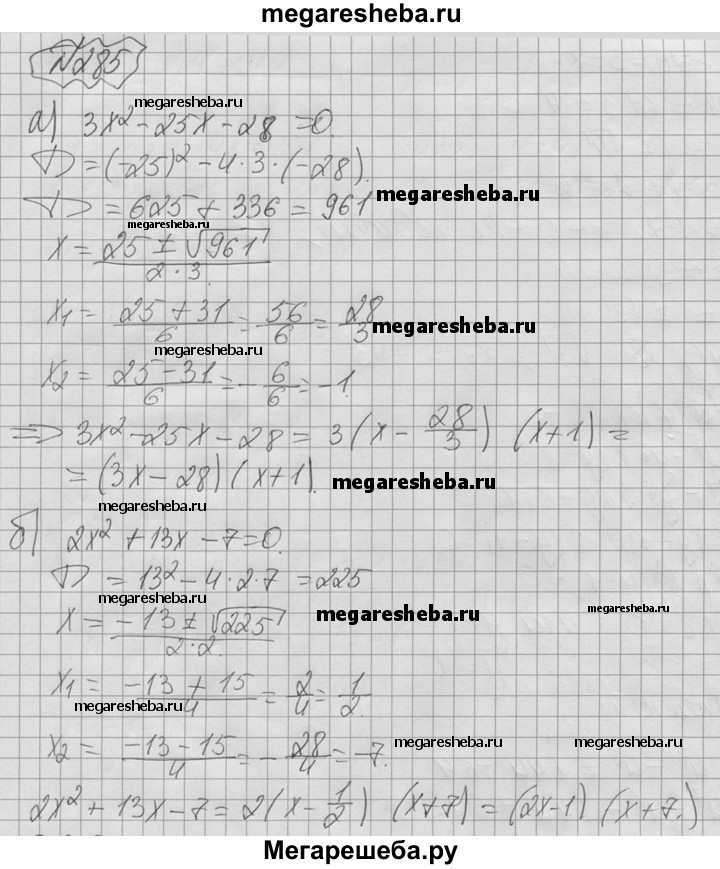 megaresheba.ru
№285
megaresheba.ru
а) 3x² - 25x - 28 = 0.
D = (-25)² - 4·3·(-28).
D = 625 + 336 = 961
megaresheba.ru
megaresheba.ru
x = (25 ± √961)/(2·3).
x₁ = (25 + 31)/6 = 56/6 = 28/3
megaresheba.ru
megaresheba.ru
x₂ = (25 - 31)/6 = -6/6 = -1.
=> 3x² - 25x - 28 = 3(x - 28/3) (x+1) =
= (3x - 28)(x+1).
megaresheba.ru
megaresheba.ru
б) 2x² + 13x - 7 = 0.
D = 13² - 4·2·7 = 225
megaresheba.ru
megaresheba.ru
megaresheba.ru
x = (-13 ± √225)/(2·2).
x₁ = (-13 + 15)/4 = 2/4 = 1/2.
megaresheba.ru
x₂ = (-13 - 15)/4 = -28/4 = -7.
megaresheba.ru
megaresheba.ru
2x² + 13x - 7 = 2(x - 1/2) (x+7) = (2x-1) (x+7.)
Мегарешеба.ру